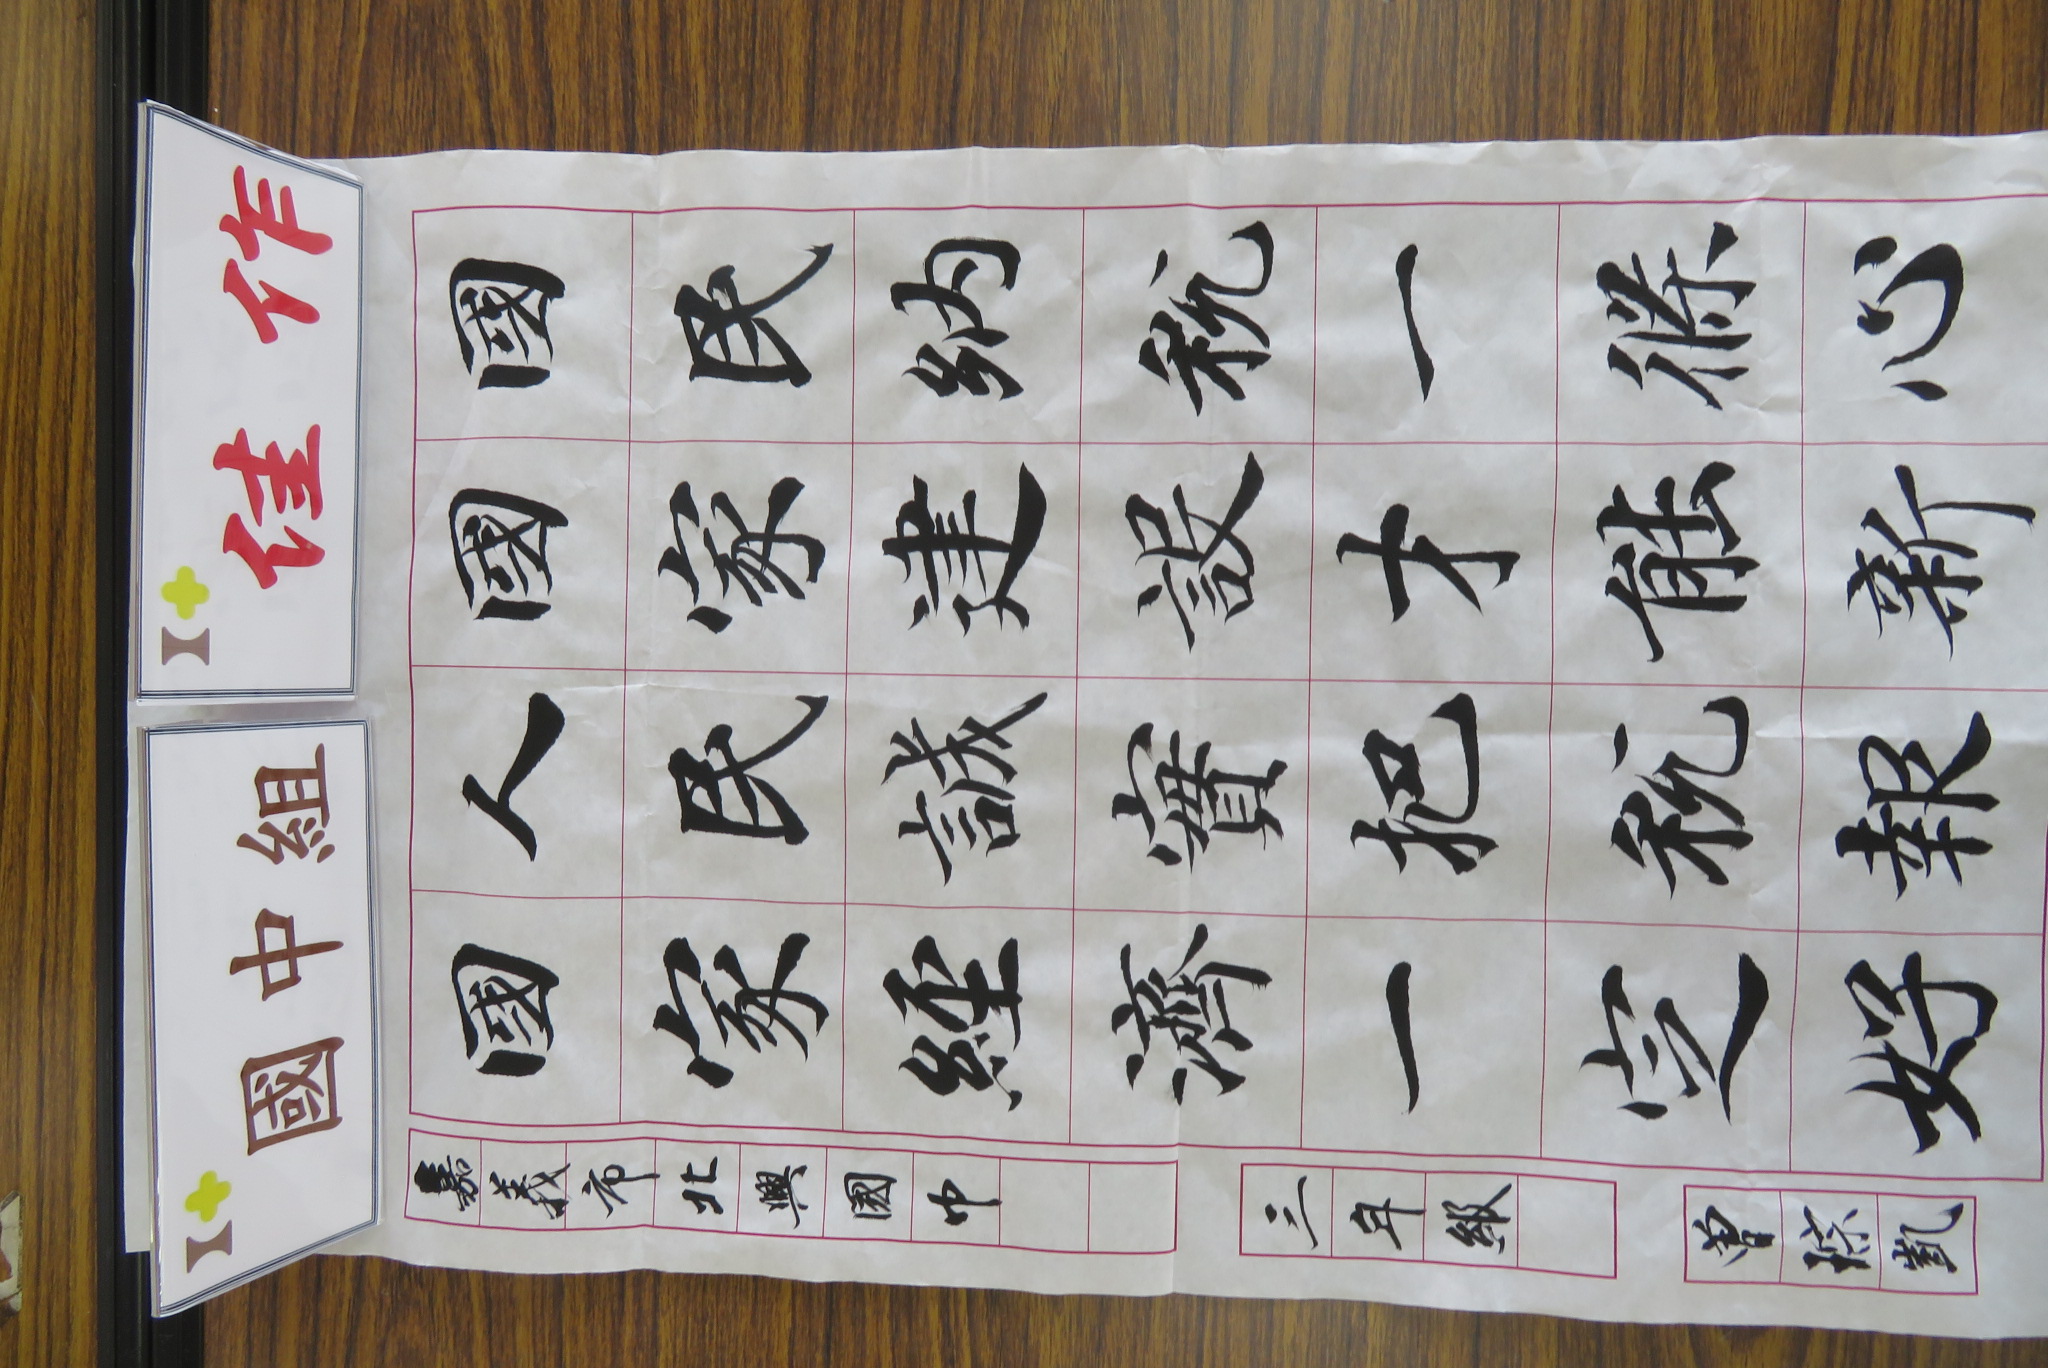 佳作
國中組
國民納稅一條心
國家建設才能新
人民誠實把稅報
國家經濟一定好
嘉義市北興國中
三年級
曾琮凱